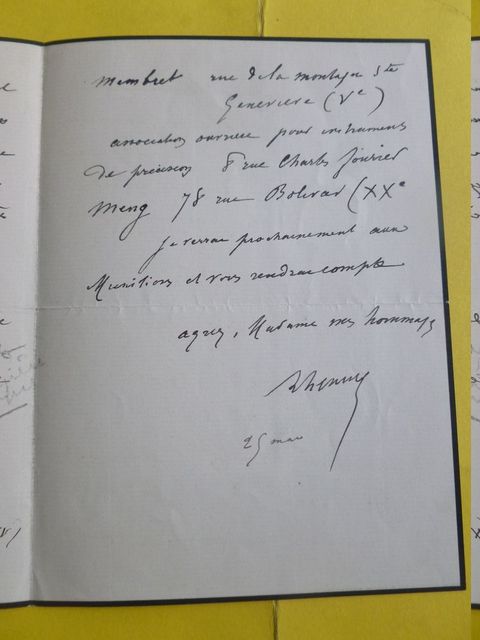 Membret rue de la montagne Ste
Geneviève (Ve)
association ouvrière pour instruments
de précision 8 rue Charles Fourier
Meng 78 rue Bolivar (XXe
Je verrai prochainement aux
Munitions et vous rendrai compte
agréez, Madame mes hommages
25 mai